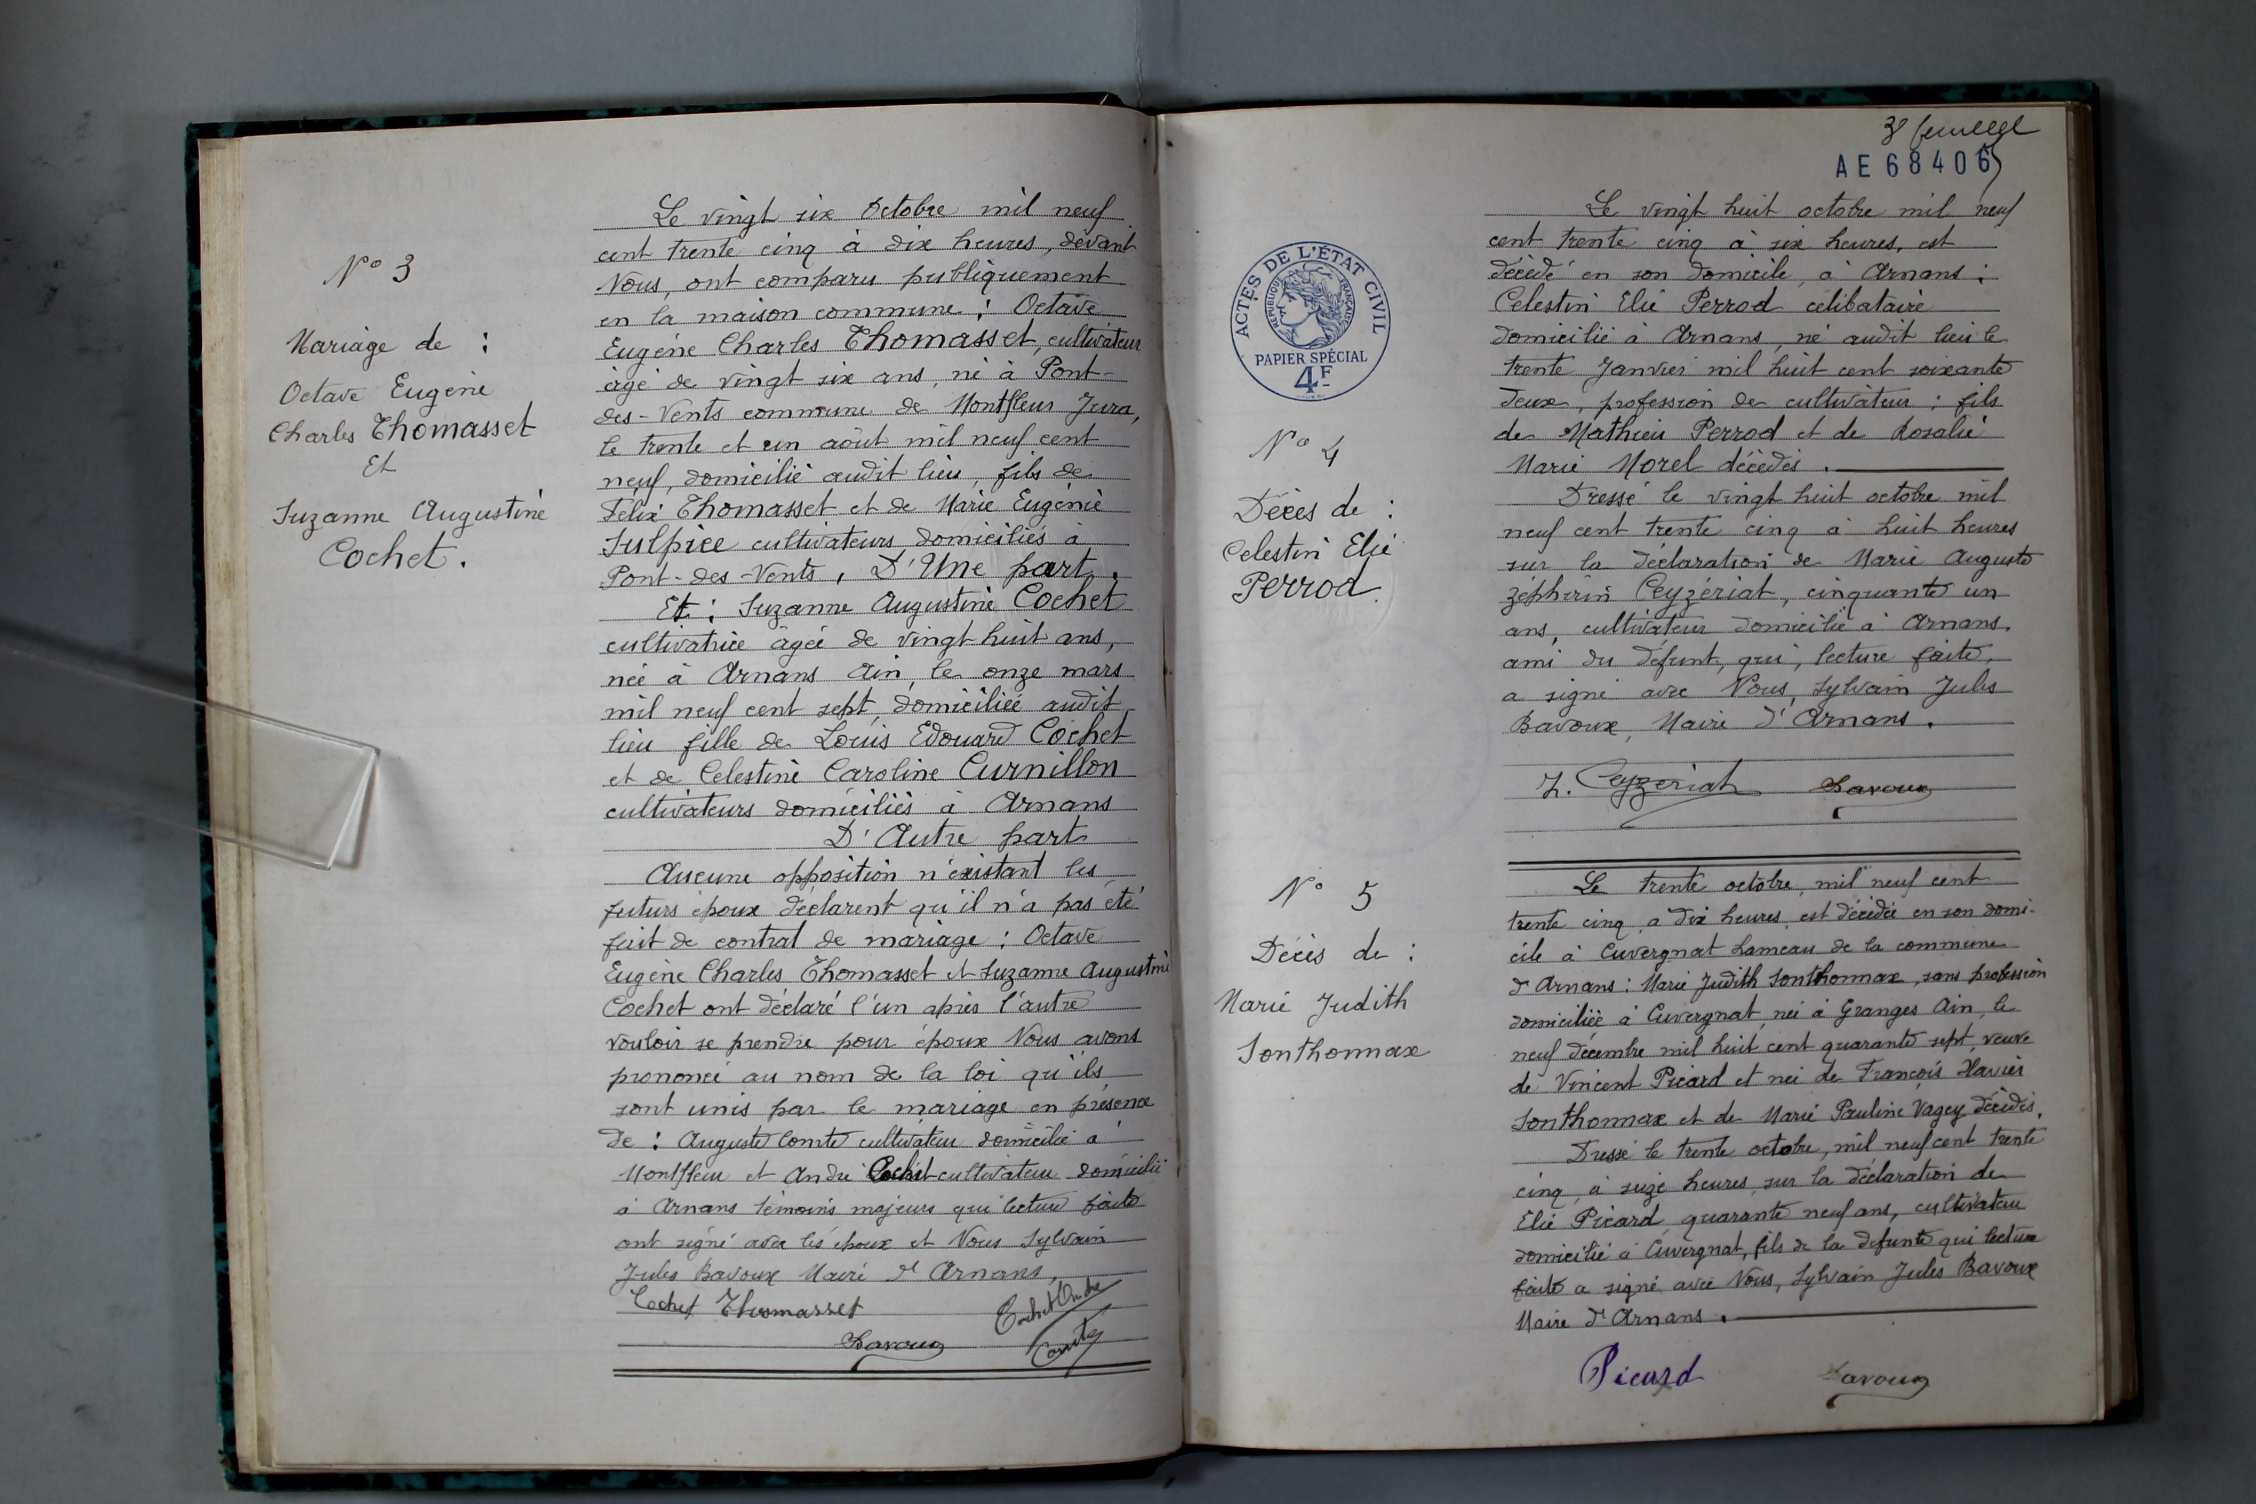 N° 3
Mariage de :
Octave Eugène
Charles Thomasset
Et
Suzanne Augustine
Cochet.
Le vingt six Octobre mil neuf
cent trente cinq à dix heures, devant
Nous, ont comparu publiquement
en la maison commune : Octave
Eugène Charles Thomasset, cultivateur
âgé de vingt six ans, né à Pont-
des-Vents commune de Montfleur Jura,
le trente et un août mil neuf cent
neuf, domicilié audit lieu, fils de
Félix Thomasset et de Marie Eugénie
Sulpice cultivateurs domiciliés à
Pont-des-Vents, D'Une part.
Et : Suzanne Augustine Cochet
cultivatrice âgée de vingt huit ans,
née à Arnans Ain, le onze mars
mil neuf cent sept, domiciliée audit
lieu fille de Louis Edouard Cochet
et de Celestine Caroline Curnillon
cultivateurs domiciliés à Arnans
D'Autre part
Aucune opposition n'existant les
futurs époux déclarent qu'il n'a pas été
fait de contrat de mariage : Octave
Eugène Charles Thomasset et Suzanne Augustine
Cochet ont déclaré l'un après l'autre
vouloir se prendre pour époux Nous avons
prononcé au nom de la loi qu'ils
sont unis par le mariage en présence
de : Auguste Comte cultivateur domicilié à
Montfleur et André Cochet cultivateur domicilié
à Arnans témoins majeurs qui lecture faite
ont signé avec les époux et Nous Sylvain
Jules Bavoux Maire d'Arnans,
Cochet Thomasset Cochet André
Bavoux Comte
3e feuillet
AE 68406
ACTES DE L'ÉTAT CIVIL
RÉPUBLIQUE FRANÇAISE
PAPIER SPÉCIAL
4F
N° 4
Décès de :
Celestin Elie
Perrod.
Le vingt huit octobre mil neuf
cent trente cinq à six heures, est
décédé en son domicile, à Arnans :
Celestin Elie Perrod célibataire
domicilié à Arnans, né audit lieu le
trente Janvier mil huit cent soixante
deux, profession de cultivateur : fils
de Mathieu Perrod et de Rosalie
Marie Morel décédés.
Dressé le vingt huit octobre mil
neuf cent trente cinq à huit heures
sur la déclaration de Marie Auguste
zéphirin Ceyzériat, cinquante un
ans, cultivateur domicilié à Arnans,
ami du défunt, qui, lecture faite,
a signé avec Nous, Sylvain Jules
Bavoux, Maire d'Arnans.
Z. Ceyzeriat Bavoux
N° 5
Décès de :
Marie Judith
Sonthonnax
Le trente octobre, mil neuf cent
trente cinq, à dix heures, est décédée en son domi-
cile à Cuvergnat hameau de la commune
d'Arnans : Marie Judith Sonthonnax, sans profession
domiciliée à Cuvergnat, née à Granges Ain, le
neuf décembre mil huit cent quarante sept, veuve
de Vincent Picard et née de François Xavier
Sonthonnax et de Marie Pauline Vagey décédés.
Dressé le trente octobre, mil neuf cent trente
cinq, à seize heures, sur la déclaration de
Elie Picard quarante neuf ans, cultivateur
domicilié à Cuvergnat, fils de la defunte qui lecture
faite a signé avec Nous, Sylvain Jules Bavoux
Maire d'Arnans.
Picard Bavoux